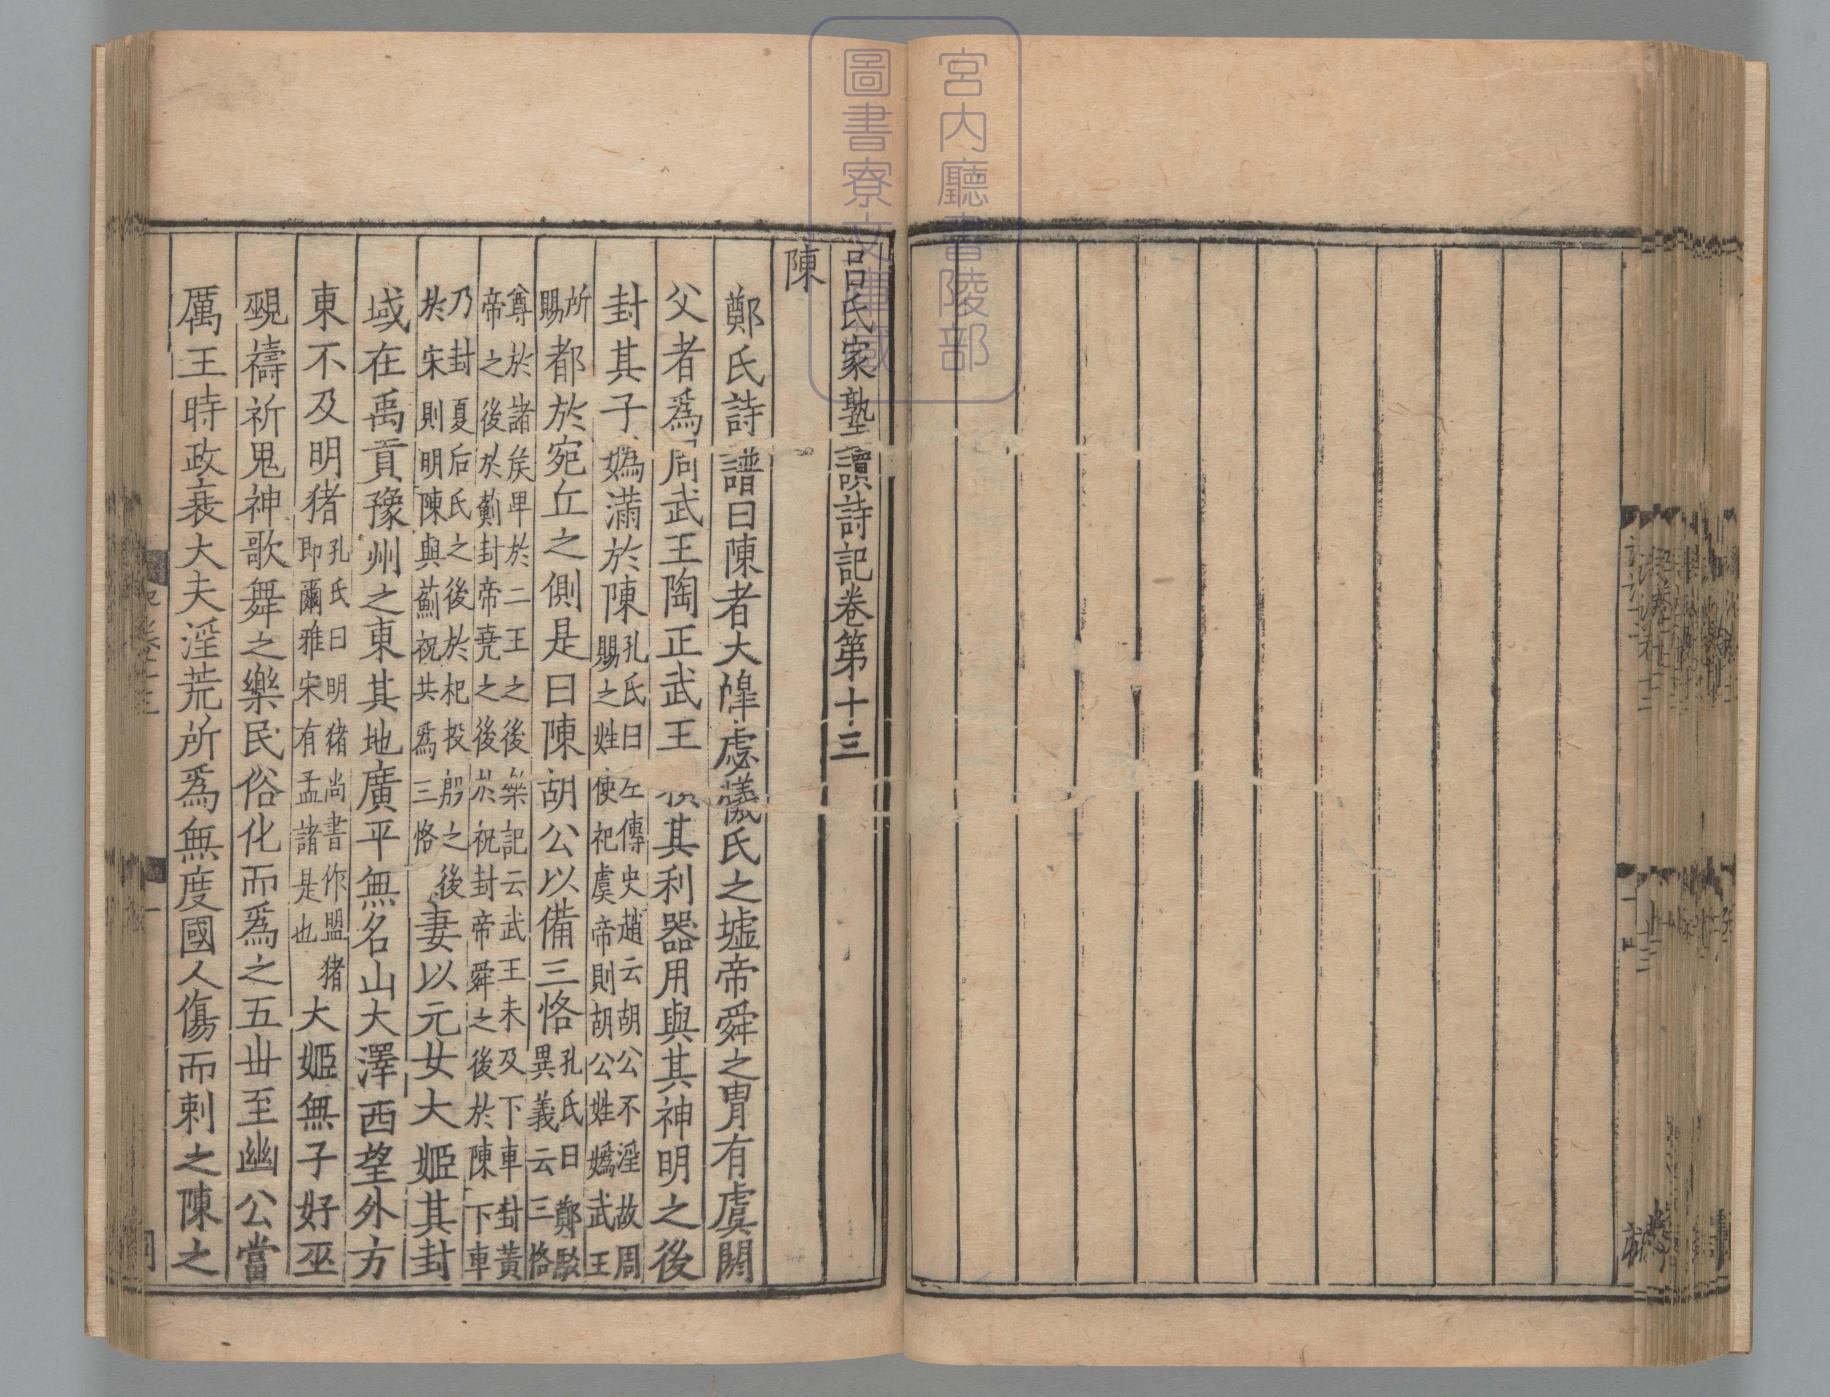 宮内廳書陵部
圖書寮文庫藏
呂氏家塾讀詩記卷第十三
陳
鄭氏詩譜曰陳者大皥虙犧氏之墟帝舜之胄有虞閼
父者爲周武王陶正武王賴其利器用與其神明之後
封其子嬀滿於陳孔氏曰左傳史趙云胡公不淫故周
賜之姓使祀虞帝則胡公姓嬀武王
所賜都於宛丘之側是曰陳胡公以備三恪孔氏曰鄭駮
異義云三恪
尊於諸侯卑於二王之後樂記云武王未及下車封黃
帝之後於薊封帝堯之後於祝封帝舜之後於陳下車
乃封夏后氏之後於杞投殷之後
於宋則明陳與薊祝共爲三恪妻以元女大姬其封
域在禹貢豫州之東其地廣平無名山大澤西望外方
東不及明猪孔氏曰明猪尚書作盟猪
即爾雅宋有孟諸是也大姬無子好巫
覡禱祈鬼神歌舞之樂民俗化而爲之五丗至幽公當
厲王時政衰大夫淫荒所爲無度國人傷而刺之陳之